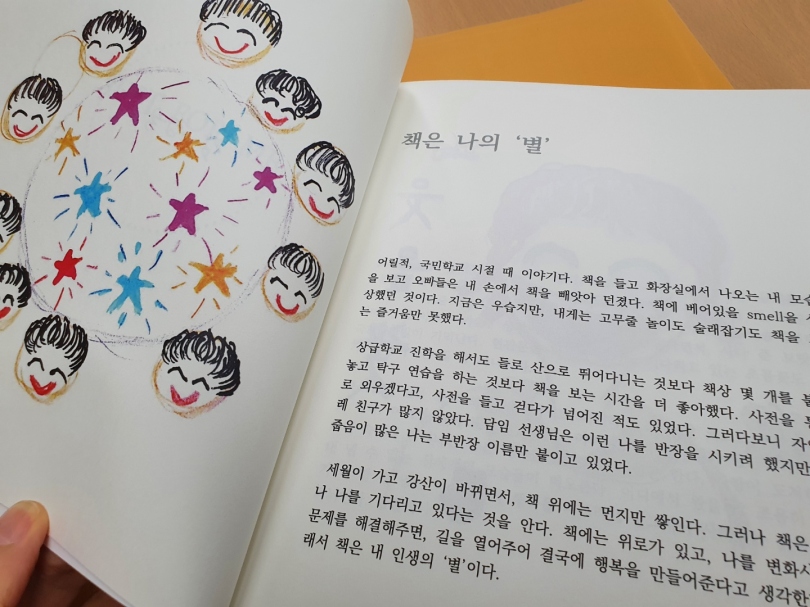 책은 나의 '별'
어릴적, 국민학교 시절 때 이야기다. 책을 들고 화장실에서 나오는 내 모습
을 보고 오빠들은 내 손에서 책을 빼앗아 던졌다. 책에 베어있을 smell을
상했던 것이다. 지금은 우습지만, 내게는 고무줄 놀이도 술래잡기도 책을
는 즐거움만 못했다.
상급학교 진학을 해서도 들로 산으로 뛰어다니는 것보다 책상 몇 개를
놓고 탁구 연습을 하는 것보다 책을 보는 시간을 더 좋아했다. 사전을
로 외우겠다고, 사전을 들고 걷다가 넘어진 적도 있었다. 그러다보니
레 친구가 많지 않았다. 담임 선생님은 이런 나를 반장을 시키려 했지만
줍음이 많은 나는 부반장 이름만 붙이고 있었다.
세월이 가고 강산이 바뀌면서, 책 위에는 먼지만 쌓인다. 그러나 책은
나 나를 기다리고 있다는 것을 안다. 책에는 위로가 있고, 나를 변화
문제를 해결해주면, 길을 열어주어 결국에 행복을 만들어준다고 생각한
래서 책은 내 인생의 '별'이다.